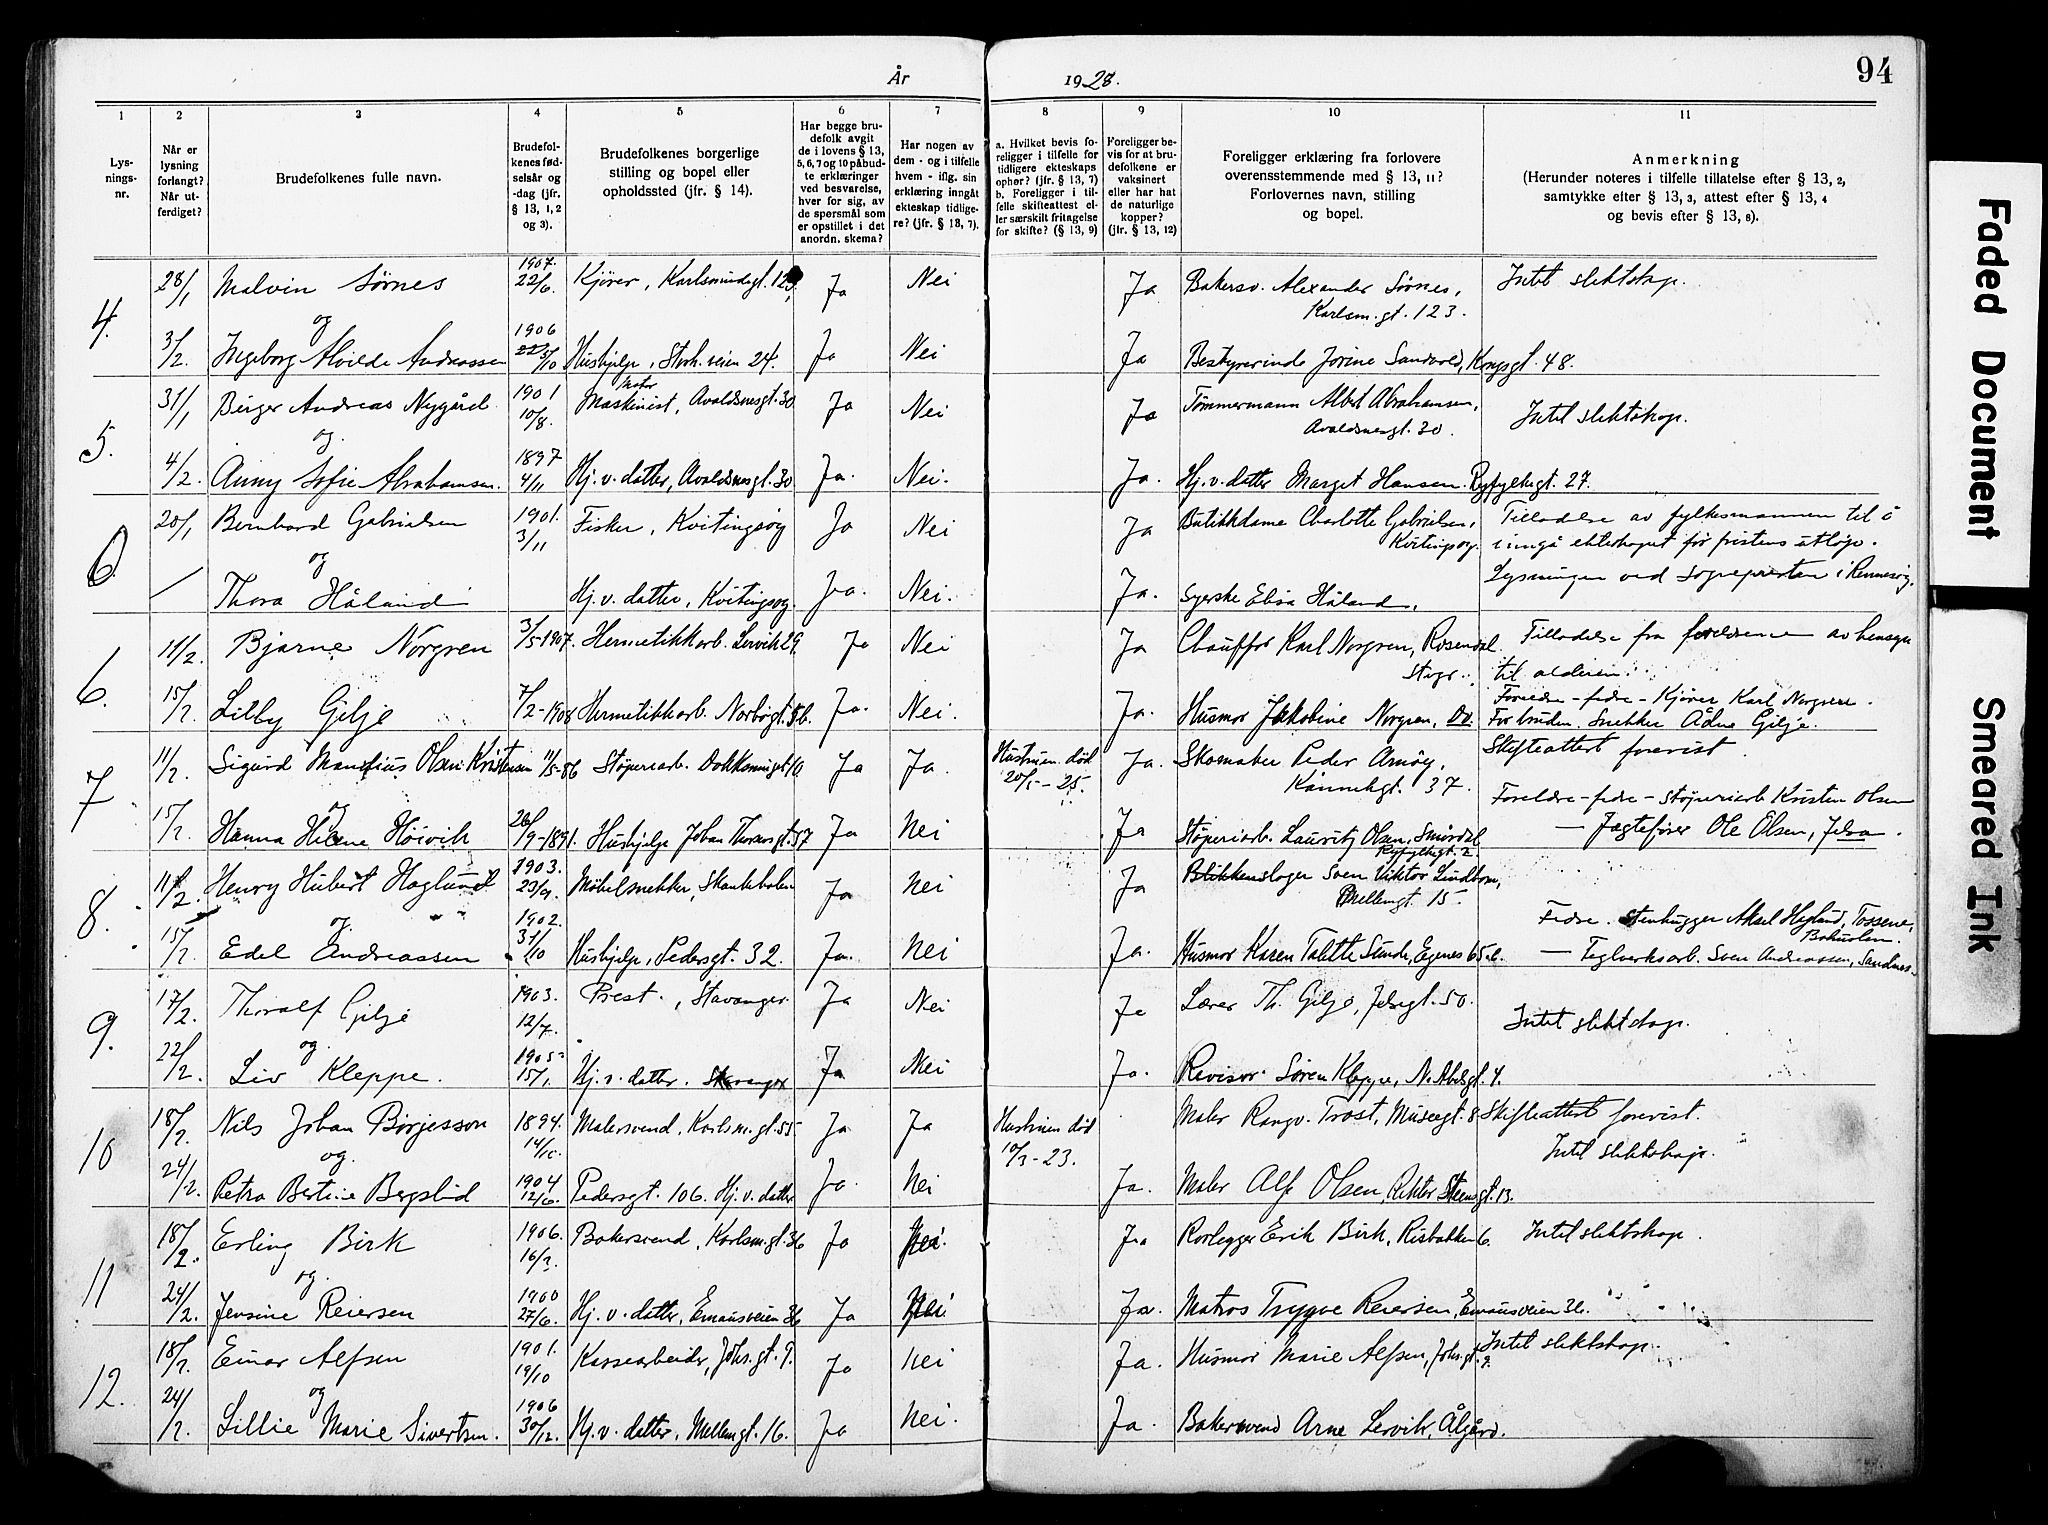 År 1928.
94
1 2 3 4 5 6 7 8 9 10 11
Lysnings-nr.
Når er lysning forlangt? Når utferdiget?
Brudefolkenes fulle navn.
Brudefolkenes fødselsår og -dag (jfr. § 13, 1, 2 og 3).
Brudefolkenes borgerlige stilling og bopel eller opholdssted (jfr. § 14).
Har begge brudefolk avgit de i lovens § 13, 5, 6, 7 og 10 påbudte erklæringer ved besvarelse, hver for sig, av de spørsmål som er opstillet i det anordn. skema?
Har nogen av dem - og i tilfelle hvem - iflg. sin erklæring inngått ekteskap tidligere? (jfr. § 13, 7).
a. Hvilket bevis foreligger i tilfelle for tidligere ekteskaps ophør? (jfr. § 13, 7) b. Foreligger i tilfelle skifteattest eller særskilt fritagelse for skifte? (§ 13, 9)
Foreligger bevis for at brudefolkene er vaksinert eller har hat de naturlige kopper? (jfr. § 13, 12)
Foreligger erklæring fra forlovere overensstemmende med § 13, 11? Forlovernes navn, stilling og bopel.
Anmerkning (Herunder noteres i tilfelle tillatelse efter § 13, 2, samtykke efter § 13, 3, attest efter § 13, 4 og bevis efter § 13, 8).
4. 28/1 Malvin Sørnes 1907. 22/6. Kjører, Karlsmindegt. 123, Ja Nei Ja Bakersv. Alexander Sørnes, Karlsm.gt. 123. Intet slektskap.
og
3/2. Ingeborg Alvilde Andreassen 1906 5/10 Hushjelp, Stokk.veien 24. Ja Nei Ja Bestyrerinde Jorine Sandvold, Kongsgt. 48.
5. 31/1 Birger Andreas Nygård 1901 10/8. Motor Maskinist, Avaldsnesgt. 30 Ja Nei Ja Tømmermann Albert Abrahamsen, Avaldsnesgt. 30. Intet slektskap.
og.
4/2. Anny Sofie Abrahamsen. 1897 4/11 Hj. v. datter, Avaldsnesgt. 30 Ja. Nei. Ja. Hj. v. datter Marget Hansen. Ryfylkegt. 27.
6. 20/1 Bernhard Gabrielsen 1901. 3/11 Fisker, Kvitingsøy Ja Nei Ja Butikkdame Charlotte Gabrielsen, Kvitingsøy. Tilladelse av fylkesmannen til å inngå ekteskapet før fristens utløp.
og
Thora Håland Hj. v. datter, Kvitingsøy. Ja. Nei. Ja. Syerske Elisa Håland. Lysningen ved sognepresten i Rennesøy.
6. 11/2. Bjarne Norgren 3/5-1907. Hermetikkarb. Lervik 29. Ja Nei Ja Chauffør Karl Norgren, Rosendal Stvgr. Tilladelse fra foreldrene av hensyn til alderen.
15/2. Lilly Gilje 7/2-1908 Hermetikkarb. Norbøgt. 8b. Ja. Nei. Ja. Husmor Jakobine Norgren, Do. Foreldre - fedre - Kjører Karl Norgren. For bruden. Snekker Ådne Gilje.
7 11/2. Sigurd Mandius Olsen Kristensen 11/5-86 Støperiarb. Dokkeningt. 10 Ja Ja. Hustruen død 20/5-25. Ja. Skomaker Peder Arnøy, Kannikgt. 37. Skifteattest forevist.
og
15/2. Hanna Helene Høivik 26/9-1891. Hushjelp Johan Thorsensgt. 57 Ja Nei Ja Støperiarb. Lauritz Olsen, Smørdal Ryfylkegt. 2. Foreldre - fedre - støperiarb. Kristen Olsen — Jagtefører Ole Olsen, Jelsa.
8. 11/2. Henry Hubert Hoglund 1903. 23/9. Møbelsnekker, Skankeholen Ja Nei Ja Blikkenslager Sven Viktor Lindbom, Mellemgt. 15.
og.
15/2. Edel Andreassen 1902. 31/10 Hushjelp, Pedersgt. 32. Ja. Nei Ja. Husmor Karen Talette Sunde, Egenes 65. Fedre. Stenhugger Aksel Hoglund, Tossene, Bohuslen. — Teglverksarb. Sven Andreassen, Sandnes.
9. 17/2. Thoralf Gilje 1903. 12/7. Prest., Stavanger. Ja Nei Ja Lærer Th. Gilje, Jelsagt. 50. Intet slektskap.
og.
22/2. Liv Kleppe. 1905 15/1. Hj. v. datter. Stavanger Ja Nei Ja. Revisor Søren Kleppe, N. Abelsgt. 4.
10 18/2. Nils Johan Børjesson 1894. 14/10. Malersvend, Karlsm.gt. 55 Ja Ja Hustruen død 10/3-23. Maler Rangv. Trost, Museegt. 8 Skifteattest forevist. Intet slektskap.
og.
24/2. Petra Bertine Bergslid 1904 12/6. Pedersgt. 106. Hj. v. datter Ja. Nei Ja. Maler Alf Olsen, Rektor Steensgt. 13.
11 18/2. Erling Birk 1906. 16/3. Bakersvend, Karlsm.gt. 36 Ja Nei. Ja Rørlegger Erik Birk, Risbakken 6. Intet slektskap.
og.
24/2. Jensine Reiersen 1900 27/6. Hj. v. datter, Emausveien 36 Ja Nei Ja. Matros Trygve Reiersen, Emausveien 36.
12. 18/2. Einar Alfsen 1901. 19/10 Kassearbeider, Johs.gt. 9. Ja Nei Ja. Husmor Marie Alfsen, Johs.gt. 9. Intet slektskap.
og
24/2. Lillie Marie Sivertsen. 1906 30/12. Hj. v. datter, Mellemgt. 16. Ja Nei. Ja. Bakersvend Arne Lervik, Ålgård.
Faded Document
Smeared Ink